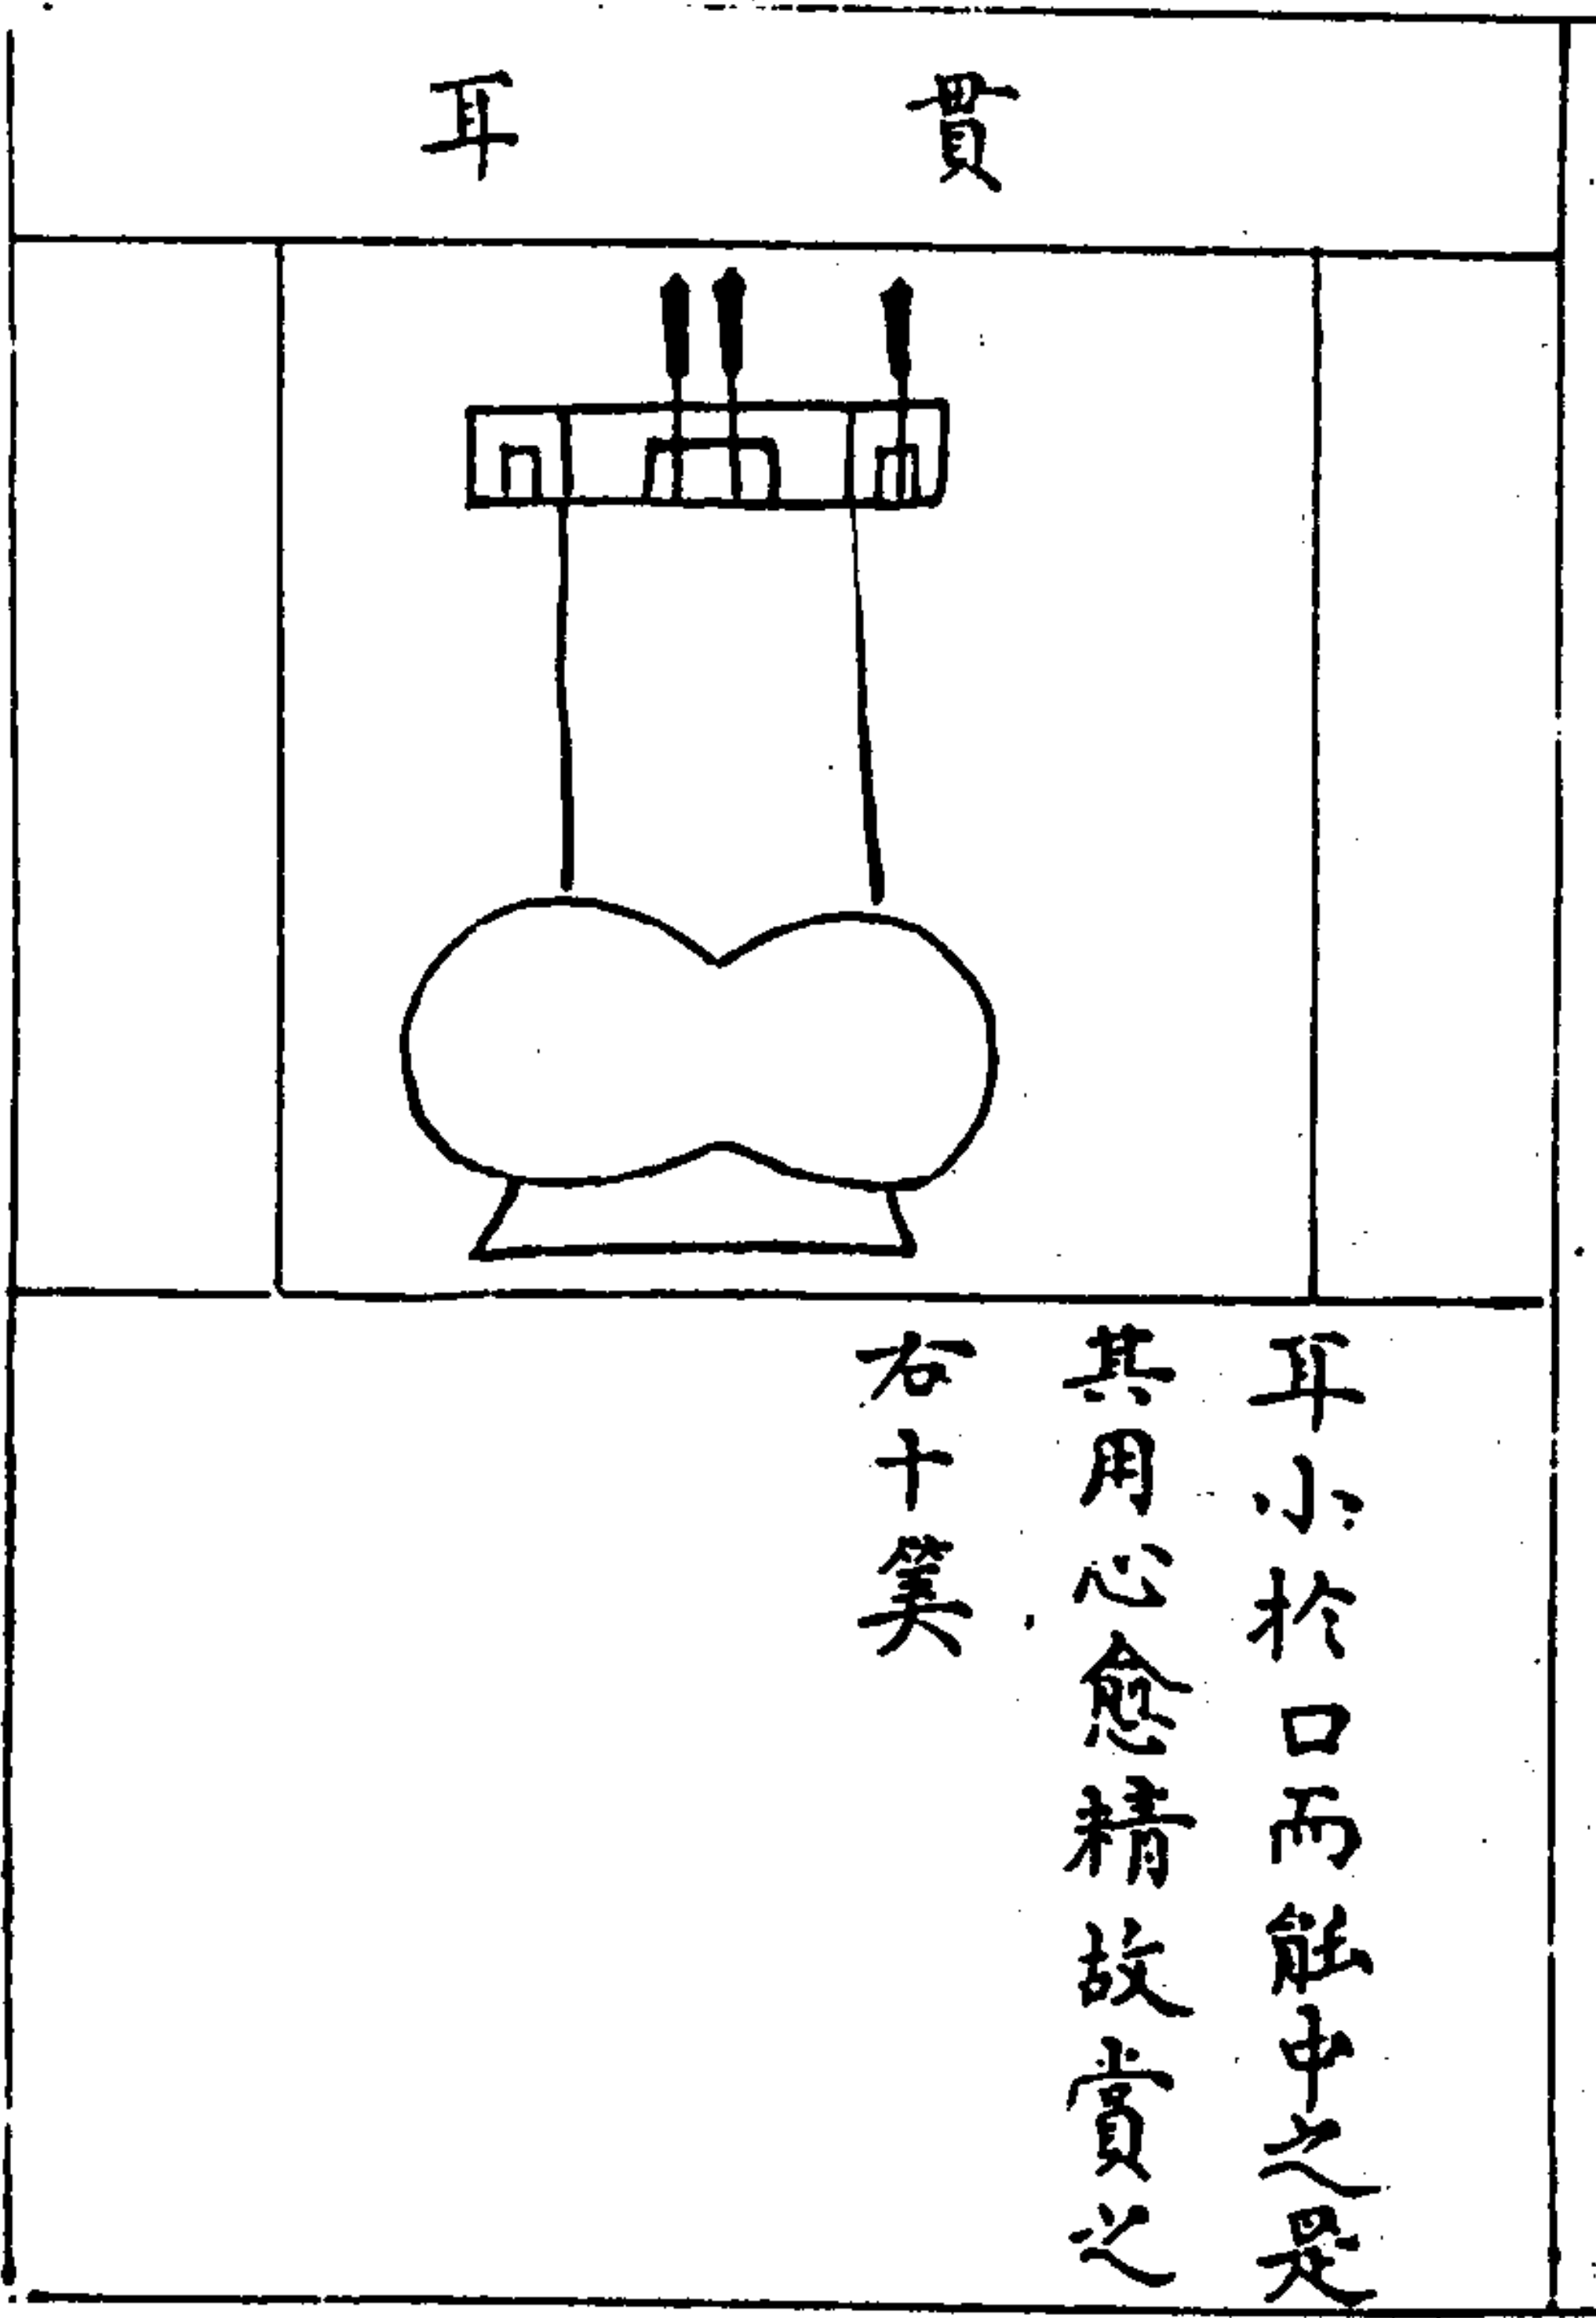 貫耳
耳小於口而能中之是
其用心愈精故賞之
右十筭